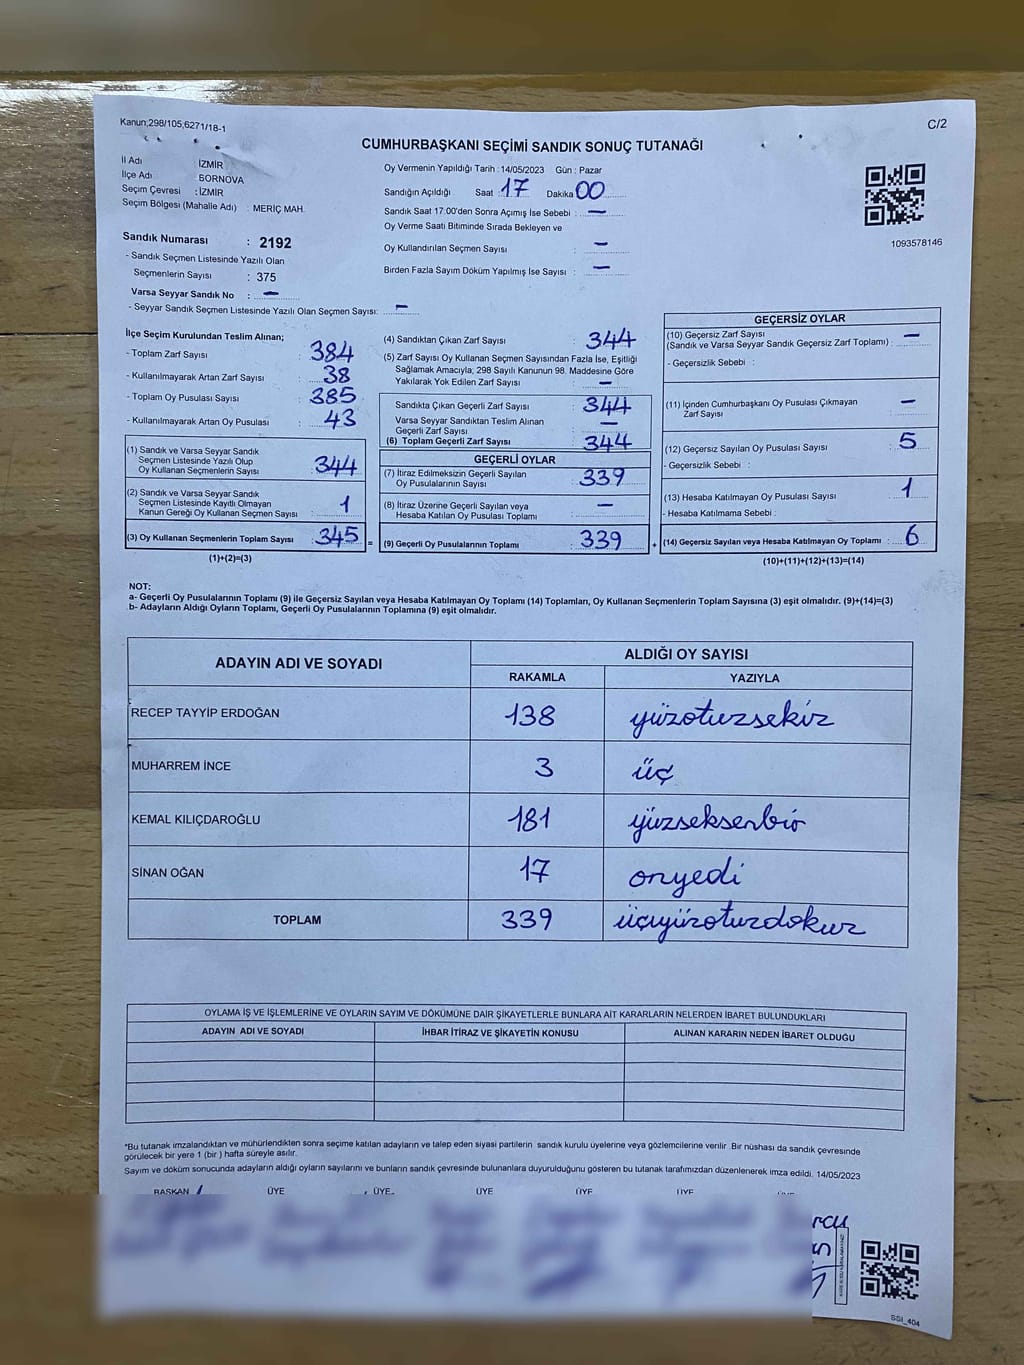 Kanun;298/105,6271/18-1
C/2
CUMHURBAŞKANI SEÇİMİ SANDIK SONUÇ TUTANAĞI
İl Adı : İZMİR
İlçe Adı : BORNOVA
Seçim Çevresi : İZMİR
Seçim Bölgesi (Mahalle Adı) : MERİÇ MAH.
Oy Vermenin Yapıldığı Tarih : 14/05/2023 Gün : Pazar
Sandığın Açıldığı Saat : 17 Dakika 00
Sandık Saat 17:00'den Sonra Açımış İse Sebebi : —
Oy Verme Saati Bitiminde Sırada Bekleyen ve
Oy Kullandırılan Seçmen Sayısı : —
Birden Fazla Sayım Döküm Yapılmış İse Sayısı : —
1093578146
Sandık Numarası : 2192
- Sandık Seçmen Listesinde Yazılı Olan
Seçmenlerin Sayısı : 375
Varsa Seyyar Sandık No : —
- Seyyar Sandık Seçmen Listesinde Yazılı Olan Seçmen Sayısı: —
İlçe Seçim Kurulundan Teslim Alınan;
- Toplam Zarf Sayısı : 384
- Kullanılmayarak Artan Zarf Sayısı : 38
- Toplam Oy Pusulası Sayısı : 385
- Kullanılmayarak Artan Oy Pusulası : 43
(1) Sandık ve Varsa Seyyar Sandık
Seçmen Listesinde Yazılı Olup
Oy Kullanan Seçmenlerin Sayısı : 344
(2) Sandık ve Varsa Seyyar Sandık
Seçmen Listesinde Kayıtlı Olmayan
Kanun Gereği Oy Kullanan Seçmen Sayısı : 1
(3) Oy Kullanan Seçmenlerin Toplam Sayısı : 345 =
(1)+(2)=(3)
(4) Sandıktan Çıkan Zarf Sayısı : 344
(5) Zarf Sayısı Oy Kullanan Seçmen Sayısından Fazla İse, Eşitliği
Sağlamak Amacıyla; 298 Sayılı Kanunun 98. Maddesine Göre
Yakılarak Yok Edilen Zarf Sayısı : —
Sandıkta Çıkan Geçerli Zarf Sayısı : 344
Varsa Seyyar Sandıktan Teslim Alınan
Geçerli Zarf Sayısı : —
(6) Toplam Geçerli Zarf Sayısı : 344
GEÇERLİ OYLAR
(7) İtiraz Edilmeksizin Geçerli Sayılan
Oy Pusulalarının Sayısı : 339
(8) İtiraz Üzerine Geçerli Sayılan veya
Hesaba Katılan Oy Pusulası Toplamı : —
(9) Geçerli Oy Pusulalarının Toplamı : 339 +
GEÇERSİZ OYLAR
(10) Geçersiz Zarf Sayısı
(Sandık ve Varsa Seyyar Sandık Geçersiz Zarf Toplamı) : —
- Geçersizlik Sebebi :
(11) İçinden Cumhurbaşkanı Oy Pusulası Çıkmayan
Zarf Sayısı : —
(12) Geçersiz Sayılan Oy Pusulası Sayısı : 5
- Geçersizlik Sebebi :
(13) Hesaba Katılmayan Oy Pusulası Sayısı : 1
- Hesaba Katılmama Sebebi :
(14) Geçersiz Sayılan veya Hesaba Katılmayan Oy Toplamı : 6
(10)+(11)+(12)+(13)=(14)
NOT:
a- Geçerli Oy Pusulalarının Toplamı (9) ile Geçersiz Sayılan veya Hesaba Katılmayan Oy Toplamı (14) Toplamları, Oy Kullanan Seçmenlerin Toplam Sayısına (3) eşit olmalıdır. (9)+(14)=(3)
b- Adayların Aldığı Oyların Toplamı, Geçerli Oy Pusulalarının Toplamına (9) eşit olmalıdır.
ADAYIN ADI VE SOYADI
ALDIĞI OY SAYISI
RAKAMLA YAZIYLA
RECEP TAYYİP ERDOĞAN 138 yüzotuzsekiz
MUHARREM İNCE 3 üç
KEMAL KILIÇDAROĞLU 181 yüzseksenbir
SİNAN OĞAN 17 onyedi
TOPLAM 339 üçyüzotuzdokuz
OYLAMA İŞ VE İŞLEMLERİNE VE OYLARIN SAYIM VE DÖKÜMÜNE DAİR ŞİKAYETLERLE BUNLARA AİT KARARLARIN NELERDEN İBARET BULUNDUKLARI
ADAYIN ADI VE SOYADI İHBAR İTİRAZ VE ŞİKAYETİN KONUSU ALINAN KARARIN NEDEN İBARET OLDUĞU
*Bu tutanak imzalandıktan ve mühürlendikten sonra seçime katılan adayların ve talep eden siyasi partilerin sandık kurulu üyelerine veya gözlemcilerine verilir. Bir nüshası da sandık çevresinde
görülecek bir yere 1 (bir ) hafta süreyle asılır.
Sayım ve döküm sonucunda adayların aldığı oyların sayılarını ve bunların sandık çevresinde bulunanlara duyurulduğunu gösteren bu tutanak tarafımızdan düzenlenerek imza edildi. 14/05/2023
BAŞKAN ÜYE ÜYE ÜYE ÜYE ÜYE
SSI_404